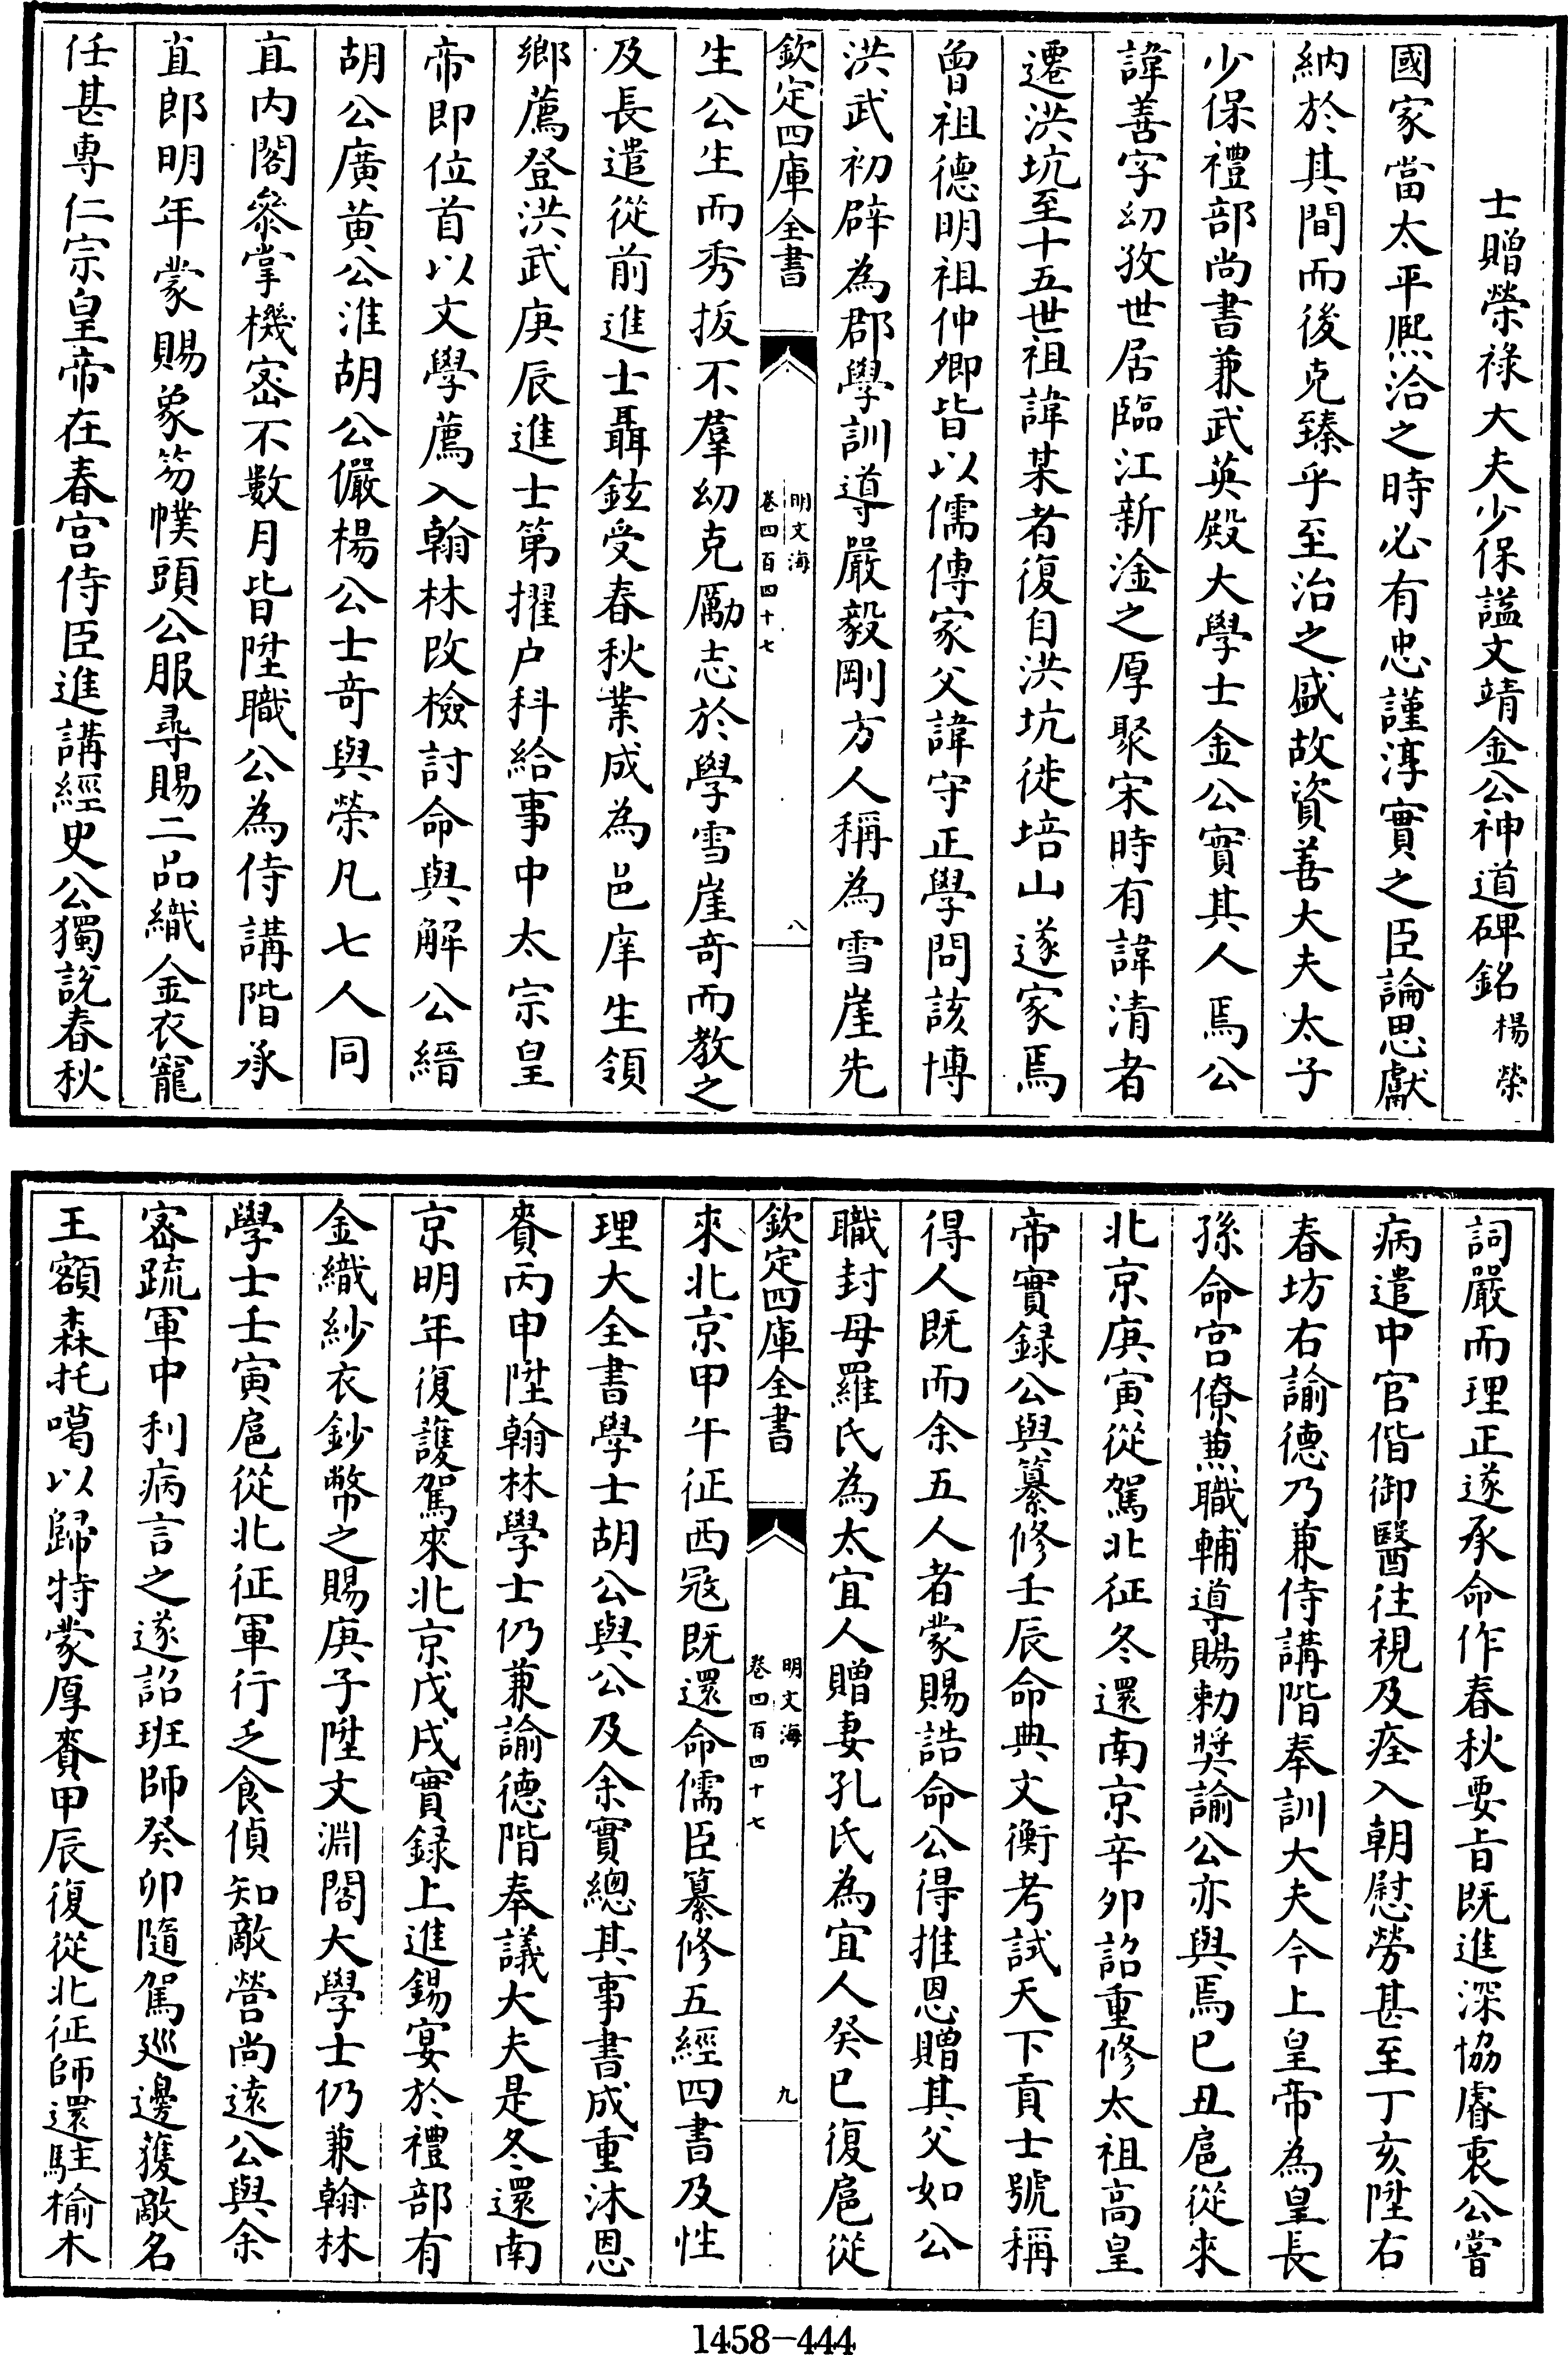 士贈榮祿大夫少保諡文靖金公神道碑銘楊榮
國家當太平熈洽之時必有忠謹淳實之臣論思獻
納於其間而後克臻乎至治之盛故資善大夫太子
少保禮部尚書兼武英殿大學士金公實其人焉公
諱善字幼孜世居臨江新淦之厚聚宋時有諱清者
遷洪坑至十五世祖諱某者復自洪坑徙培山遂家焉
曾祖德明祖仲卿皆以儒傳家父諱守正學問該博
洪武初辟為郡學訓導嚴毅剛方人稱為雪崖先
欽定四庫全書
明文海
卷四百四十七
八
生公生而秀㧞不羣幼克勵志於學雪崖竒而教之
及長遣從前進士聶鉉受春秋業成為邑庠生領
鄉薦登洪武庚辰進士第擢户科給事中太宗皇
帝即位首以文學薦入翰林改檢討命與解公縉
胡公廣黄公淮胡公儼楊公士竒與榮凡七人同
直内閣叅掌機宻不數月皆陞職公為侍講階承
直郎明年蒙賜象笏幞頭公服尋賜二品織金衣寵
任甚專仁宗皇帝在春宫侍臣進講經史公獨說春秋
詞嚴而理正遂承命作春秋要旨既進深協睿衷公嘗
病遣中官偕御醫往視及痊入朝慰勞甚至丁亥陞右
春坊右諭德乃兼侍講階奉訓大夫今上皇帝為皇長
孫命宫僚兼職輔導賜勅奬諭公亦與焉已丑扈從來
北京庚寅從駕北征冬還南京辛卯詔重修太祖高皇
帝實録公與纂修壬辰命典文衡考試天下貢士號稱
得人既而余五人者蒙賜誥命公得推恩贈其父如公
職封母羅氏為太宜人贈妻孔氏為宜人癸巳復扈從
欽定四庫全書
明文海
卷四百四十七
九
來北京甲午征西冦既還命儒臣纂修五經四書及性
理大全書學士胡公與公及余實總其事書成重沐恩
賚丙申陞翰林學士仍兼諭德階奉議大夫是冬還南
京明年復護駕來北京戊戌實録上進錫宴於禮部有
金織紗衣鈔幣之賜庚子陞文淵閣大學士仍兼翰林
學士壬寅扈從北征軍行乏食偵知敵營尚遠公與余
宻疏軍中利病言之遂詔班師癸卯隨駕廵邊獲敵名
王額森托噶以歸特蒙厚賚甲辰復從北征師還駐榆木
1458-444